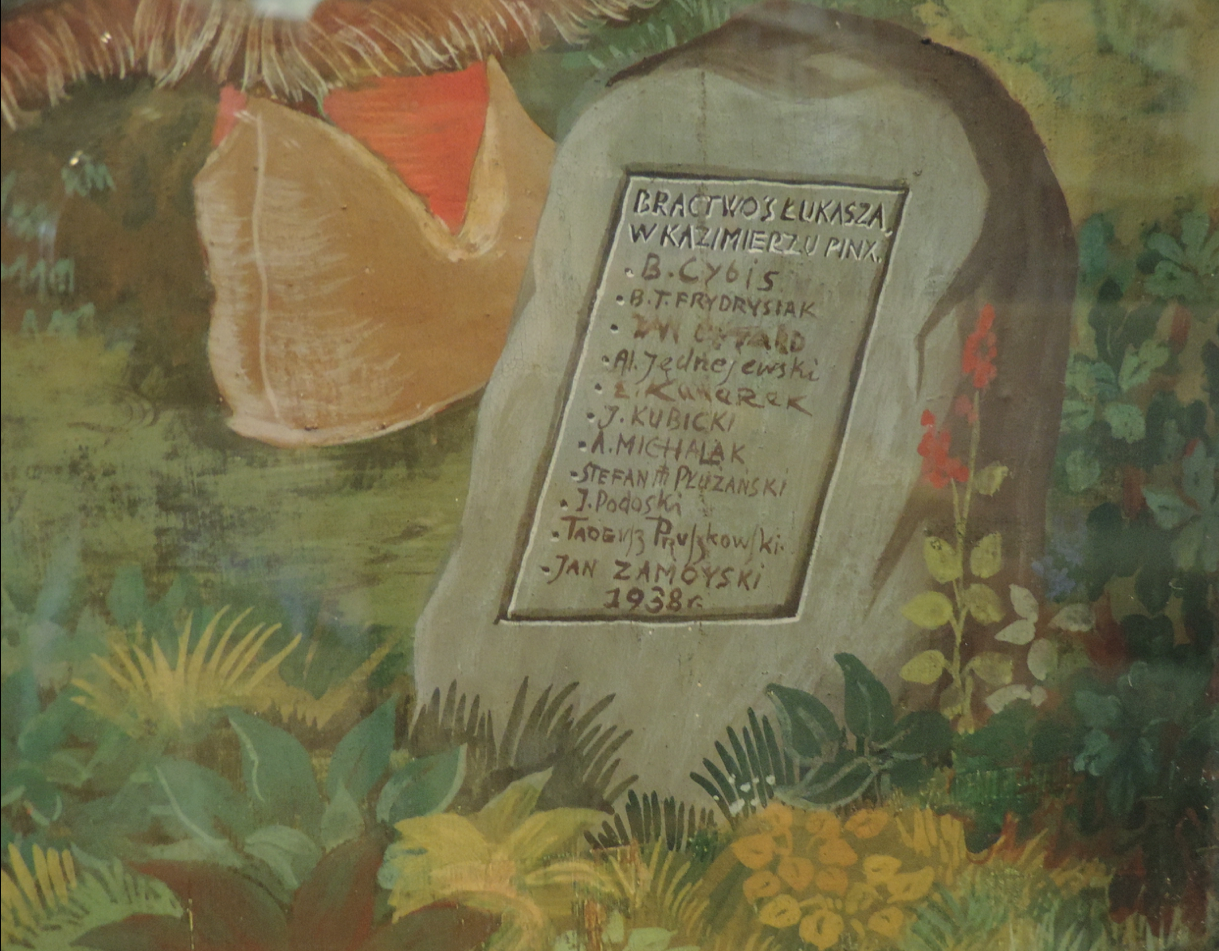 BRACTWO Ś ŁUKASZA,
W KAZIMIERZU PINX.
B. Cybis
B. T. FRYDRYSIAK
JAN GOTARD
Al. Jędrzejewski
E. Kanarek
J. KUBICKI
A. MICHALAK
STEFAN PŁUŻAŃSKI
J. Podoski
TADEUSZ Pruszkowski.
JAN ZAMOYSKI
1938 r.